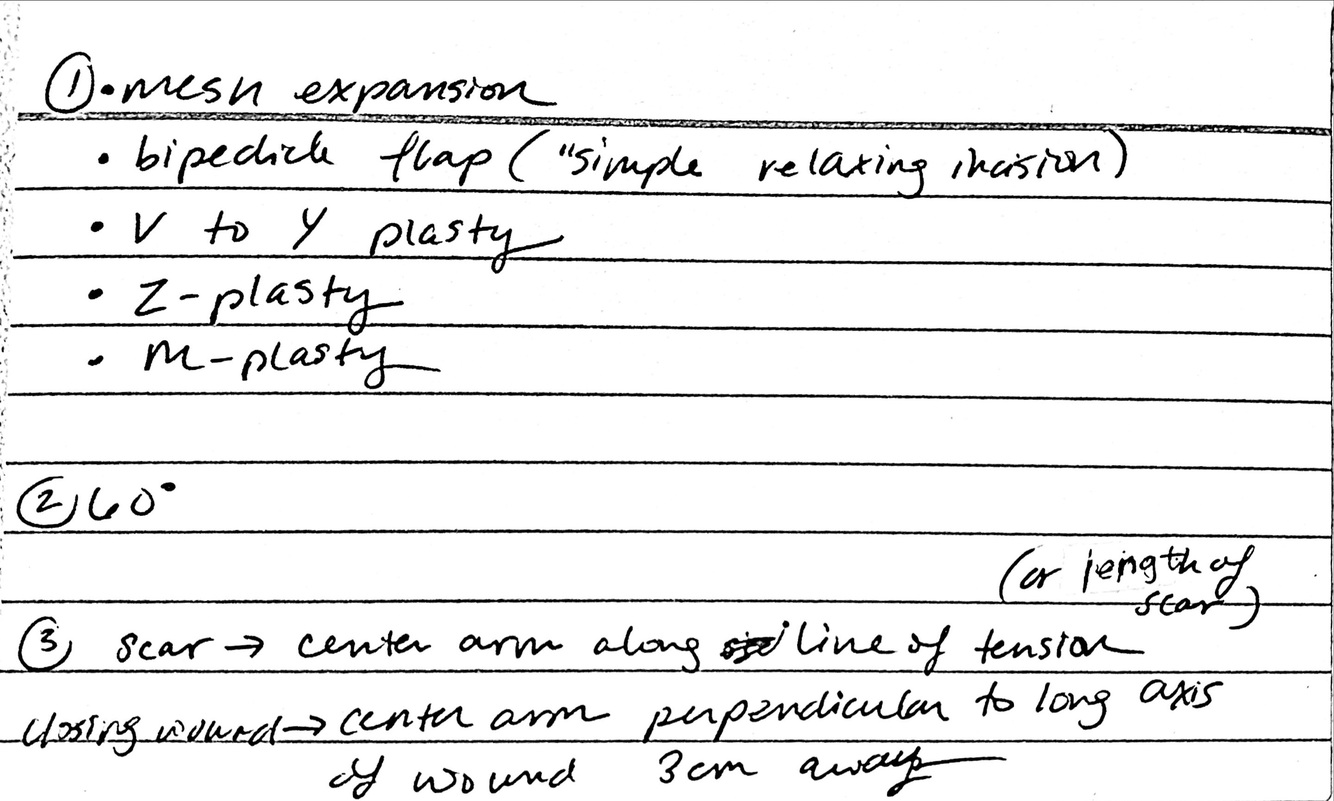 ① • mesh expansion
• bipedicle flap ("simple relaxing incision)
• V to Y plasty
• Z-plasty
• M-plasty
② 60°
(or length of
scar)
③ scar → center arm along line of tension
closing wound → center arm perpendicular to long axis
of wound 3cm away